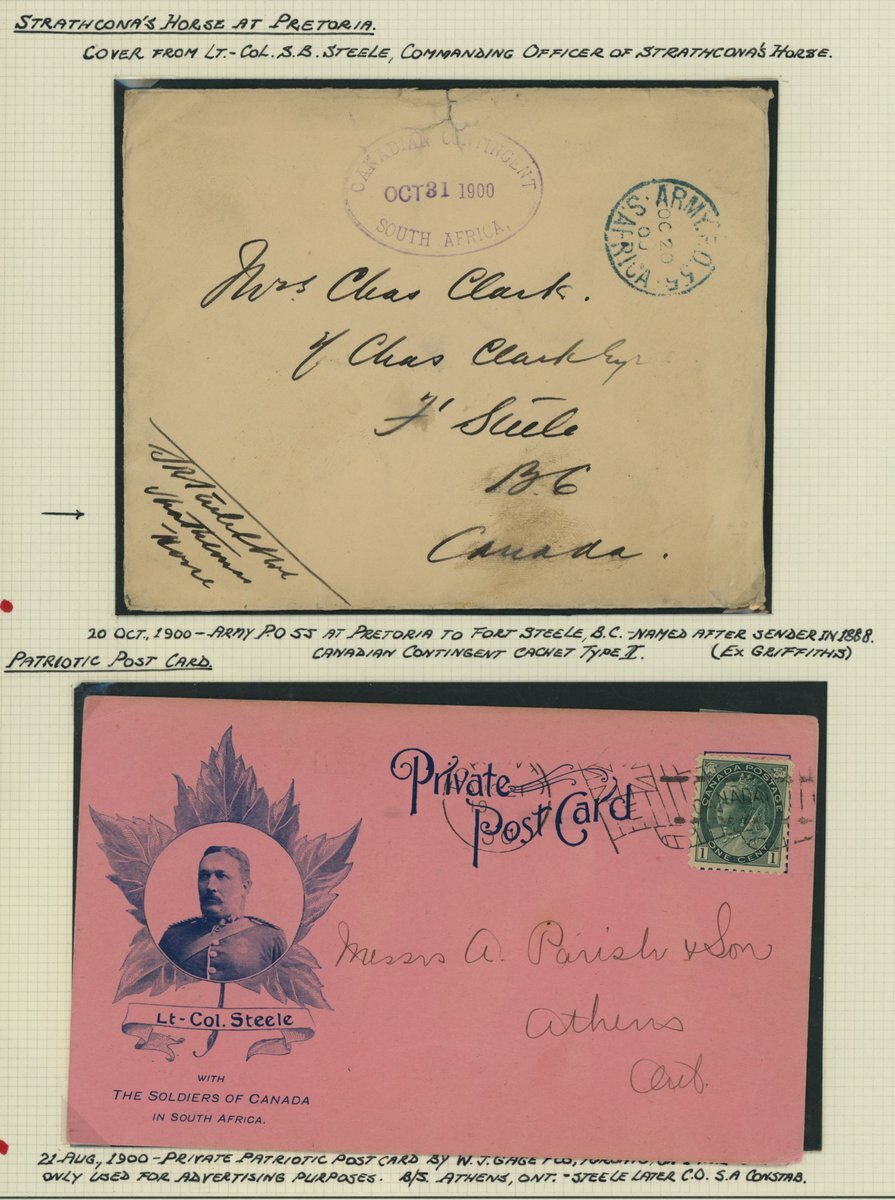 STRATHCONA'S HORSE AT PRETORIA.
COVER FROM LT.-COL. S.B. STEELE, COMMANDING OFFICER OF STRATHCONA'S HORSE.
CANADIAN CONTINGENT
OCT 31 1900
SOUTH AFRICA.
ARMY P.O. 55
OC 20
00
S. AFRICA
Mrs Chas Clark.
c/ Chas Clark Esqr
Ft Steele
B.C
Canada.
Strathconas
Horse
20 OCT., 1900 - ARMY P.O 55 AT PRETORIA TO FORT STEELE, B.C. - NAMED AFTER SENDER IN 1888.
CANADIAN CONTINGENT CACHET TYPE II. (EX GRIFFITHS)
PATRIOTIC POST CARD.
Private
Post Card
CANADA POSTAGE
CANADA
1 ONE CENT 1
Messrs A. Parish & Son
Athens
Ont.
Lt-Col. Steele
WITH
THE SOLDIERS OF CANADA
IN SOUTH AFRICA.
21 AUG., 1900 - PRIVATE PATRIOTIC POST CARD BY W. J. GAGE & CO., TORONTO,
ONLY USED FOR ADVERTISING PURPOSES. B/S ATHENS, ONT. - STEELE LATER C.O. S.A CONSTAB.